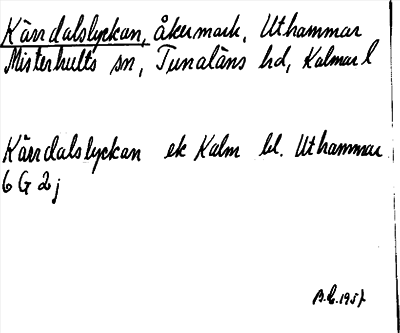 Kärrdalslyckan, åkermark, Uthammar
Misterhults sn, Tunaläns hd, Kalmar l
Kärrdalslyckan ek Kalm bl. Uthammar
6 G 2 j
B.E. 1957